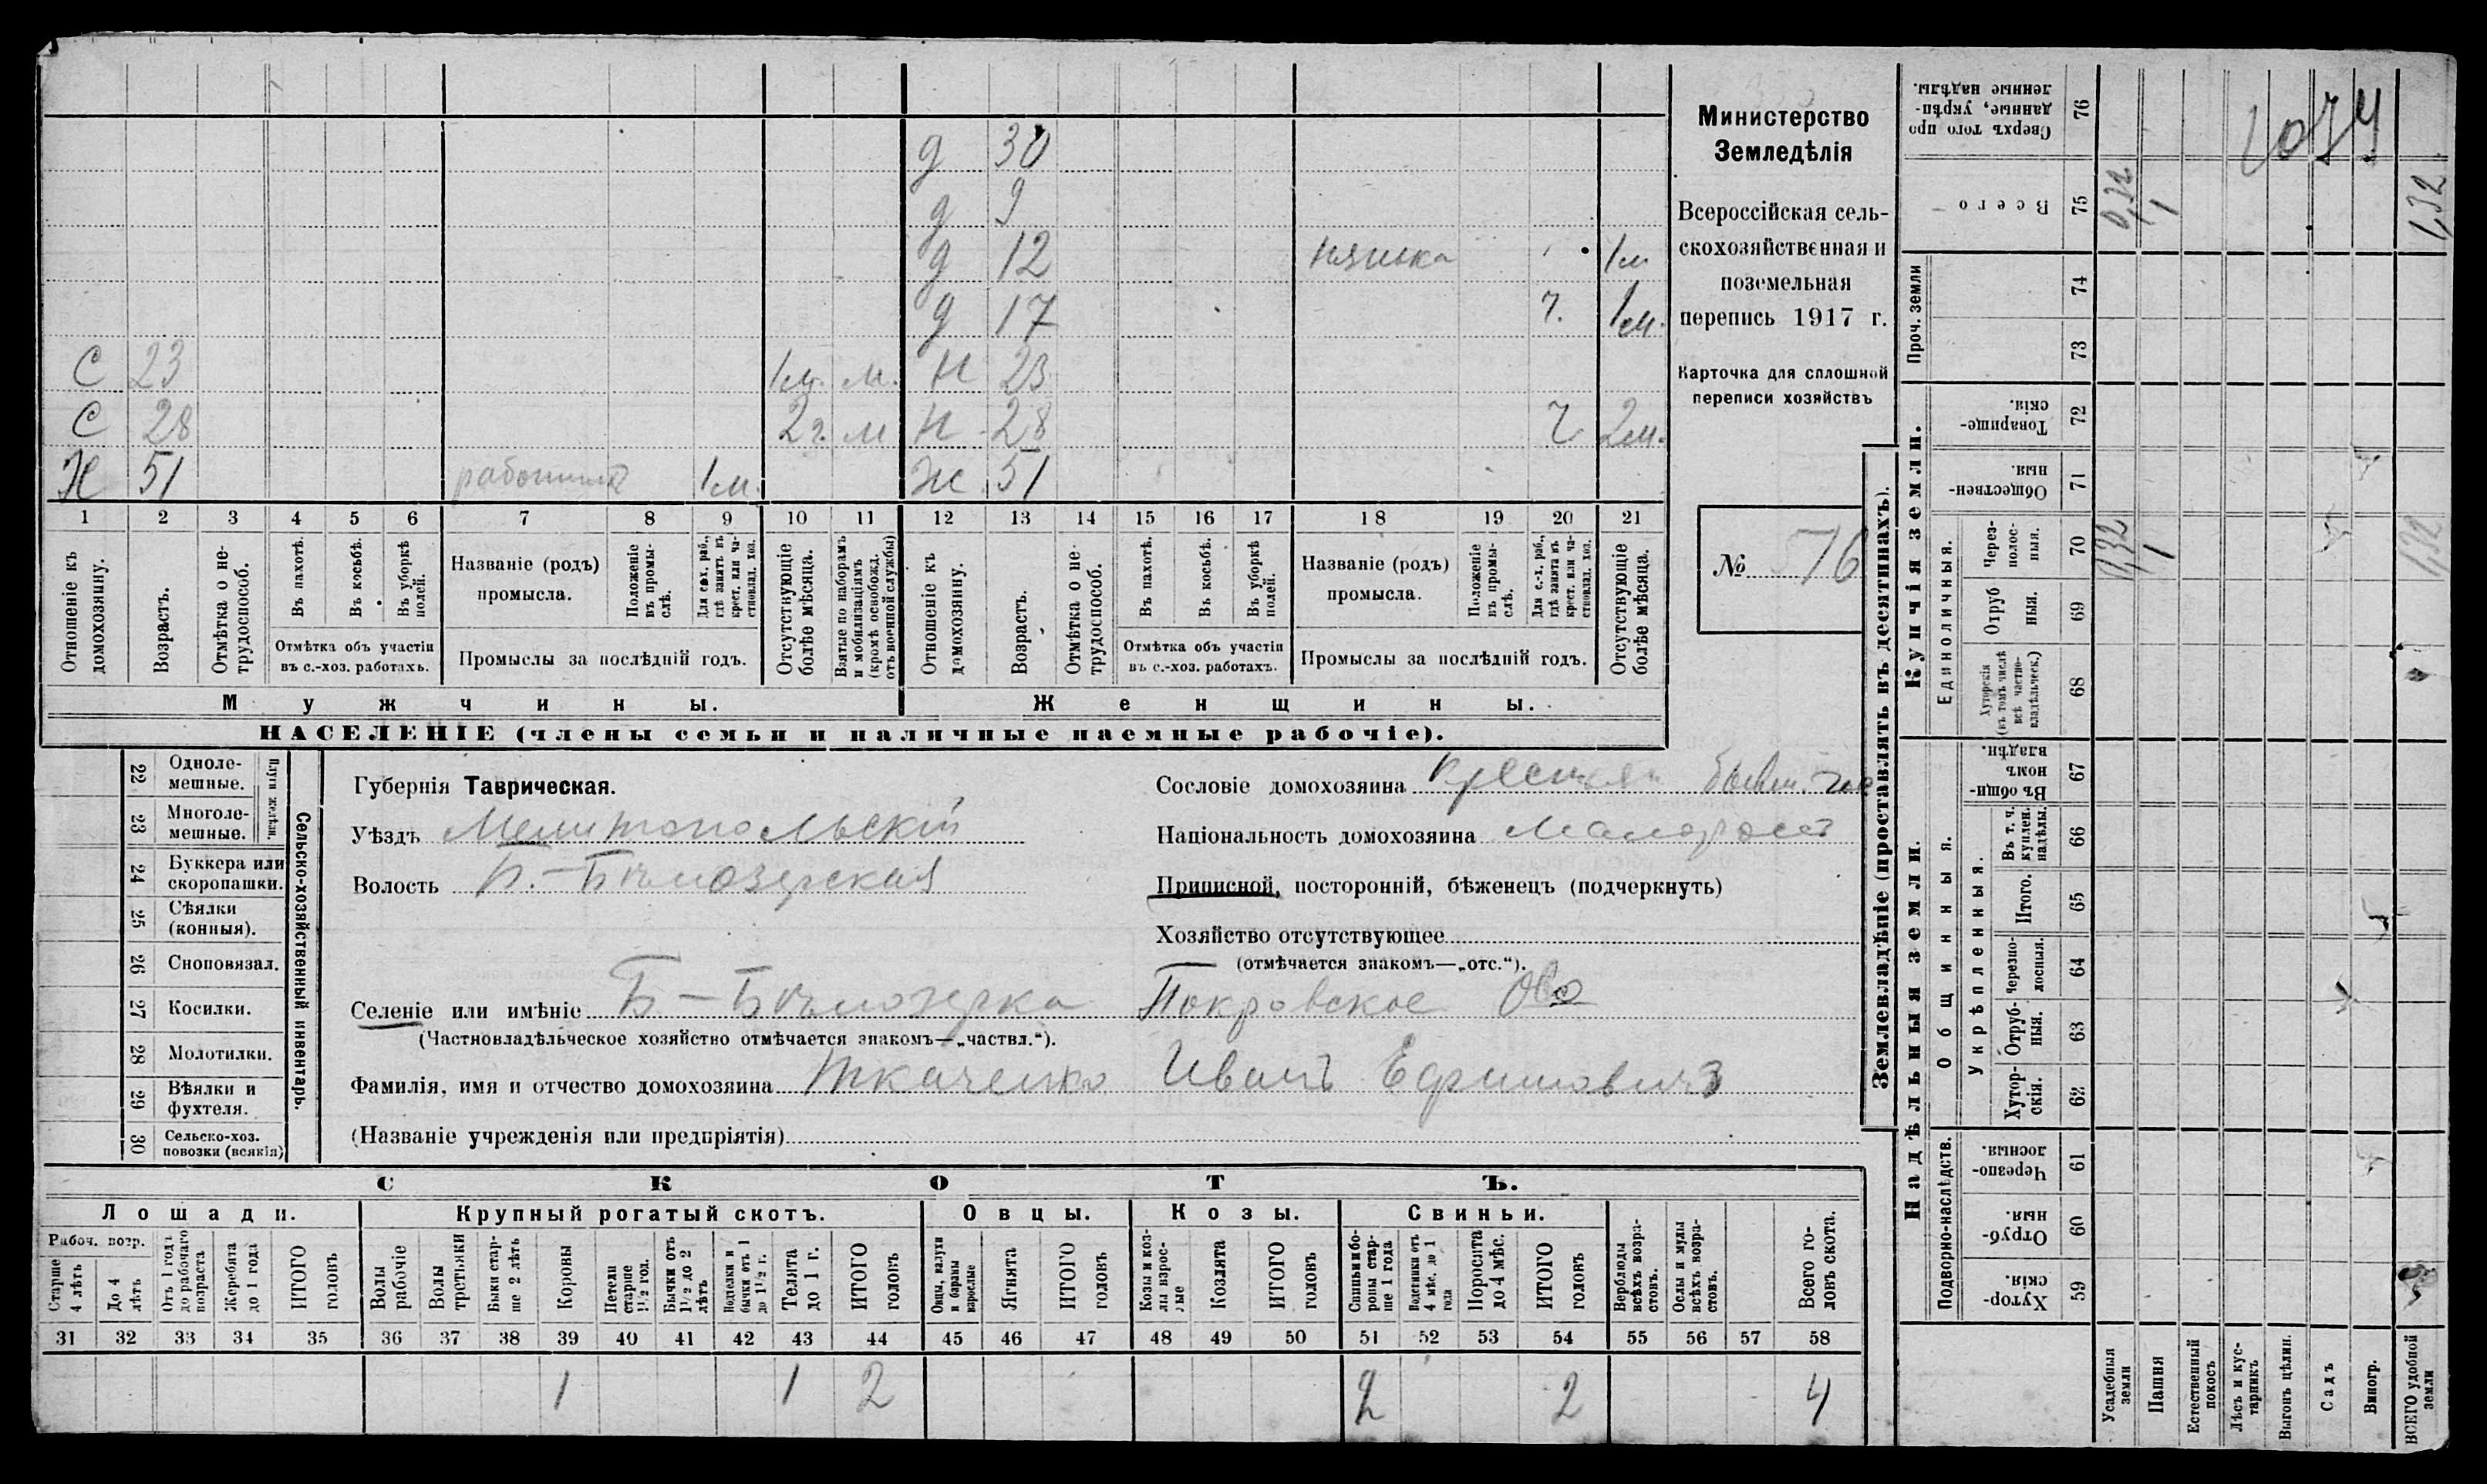 д 30
д 9
д 12 нянька 1м
д 17 г. 1м.
С 23 1м. м. Н 23
С 28 2г. м Н 28 г 2м.
Х 51 1м. Ж 51
1 2 3 4 5 6 7 8 9 10 11 12 13 14 15 16 17 18 19 20 21
Отношеніе къ домохозяину.
Возрастъ.
Отмѣтка о не-трудоспособ.
Въ пахотѣ.
Въ косьбѣ.
Въ уборкѣ полей.
Отмѣтка объ участіи въ с.-хоз. работахъ.
Названіе (родъ) промысла.
Положеніе въ промы-слѣ.
Для сел.-х. раб., гдѣ занятъ въ крест. или ча-стновлад. хоз.
Промыслы за послѣдній годъ.
Отсутствующіе болѣе мѣсяца.
Взятые по наборамъ и мобилизаціямъ (кромѣ освобожд. отъ военной службы)
Отношеніе къ домохозяину.
Возрастъ.
Отмѣтка о не-трудоспособ.
Въ пахотѣ.
Въ косьбѣ.
Въ уборкѣ полей.
Отмѣтка объ участіи въ с.-хоз. работахъ.
Названіе (родъ) промысла.
Положеніе въ промы-слѣ.
Для с.-х. раб., гдѣ занята въ крест. или ча-стновлад. хоз.
Промыслы за послѣдній годъ.
Отсутствующіе болѣе мѣсяца.
Мужчины. Женщины.
НАСЕЛЕНІЕ (члены семьи и наличные наемные рабочіе).
Министерство
Земледѣлія
Всероссійская сель-
скохозяйственная и
поземельная
перепись 1917 г.
Карточка для сплошной
переписи хозяйствъ
№ 576
Плуги желѣзн.
22 Одноле-мешные.
23 Многоле-мешные.
24 Буккера или скоропашки.
25 Сѣялки (конныя).
26 Сноповязал.
27 Косилки.
28 Молотилки.
29 Вѣялки и фухтеля.
30 Сельско-хоз. повозки (всякія)
Сельско-хозяйственный инвентарь.
Губернія Таврическая.
Уѣздъ Мелитопольскій
Волость Б.-Бѣлозерская
Сословіе домохозяина крестьян бывш. гос
Національность домохозяина Малоросъ
Приписной, посторонній, бѣженецъ (подчеркнуть)
Хозяйство отсутствующее
(отмѣчается знакомъ—„отс.“).
Селеніе или имѣніе Б-Бѣлозерка Покровское Ово
(Частновладѣльческое хозяйство отмѣчается знакомъ—„частвл.“).
Фамилія, имя и отчество домохозяина Ткаченко Иванъ Ефимовичъ
(Названіе учрежденія или предпріятія)
СКОТЪ.
Лошади. Крупный рогатый скотъ. Овцы. Козы. Свиньи.
Рабоч. возр.
Старше 4 лѣтъ
До 4 лѣтъ
Отъ 1 года до рабочаго возраста
Жеребята до 1 года
ИТОГО головъ
Волы рабочіе
Волы третьяки
Быки стар-ше 2 лѣтъ
Коровы
Петели старше 1½ год.
Бычки отъ 1½ до 2 лѣтъ
Поделки и бычки отъ 1 до 1½ г.
Телята до 1 г.
ИТОГО головъ
Овцы, валухи и бараны взрослые
Ягнята
ИТОГО головъ
Козы и коз-лы взрос-лые
Козлята
ИТОГО головъ
Свиньи и бо-ровы стар-ше 1 года
Подсвинки отъ 4 мѣс. до 1 года
Поросята до 4 мѣс.
ИТОГО головъ
Верблюды всѣхъ возра-стовъ.
Ослы и мулы всѣхъ возра-стовъ.
Всего го-ловъ скота.
31 32 33 34 35 36 37 38 39 40 41 42 43 44 45 46 47 48 49 50 51 52 53 54 55 56 57 58
1 1 2 2 2 4
Землевладѣніе (проставлять въ десятинахъ).
1074
76 Сверхъ того про данные, укрѣп-ленные надѣлы.
75 Всего 0,32 1 1,32
Проч. земли
74
73
Купчія земли.
72 Товарище-скія.
71 Обществен-ныя.
Единоличныя.
70 Через-полос-ныя. 0,32 1 1,32
69 Отруб ныя.
68 Хуторскія (въ томъ числѣ всѣ частно-владѣльческ.)
Надѣльныя земли.
Общинныя.
67 Въ общи-номъ владѣн.
Укрѣпленныя.
66 Въ т. ч. куплен. надѣлы.
65 Итого.
64 Черезпо-лосныя.
63 Отруб-ныя.
62 Хутор-скія.
Подворно-наслѣдств.
61 Черезпо-лосныя.
60 Отруб-ныя.
59 Хутор-скія.
Усадебныя земли
Пашня
Естественный покосъ
Лѣсъ и кус-тарникъ
Выгонъ цѣлин.
Садъ
Виногр.
ВСЕГО удобной земли